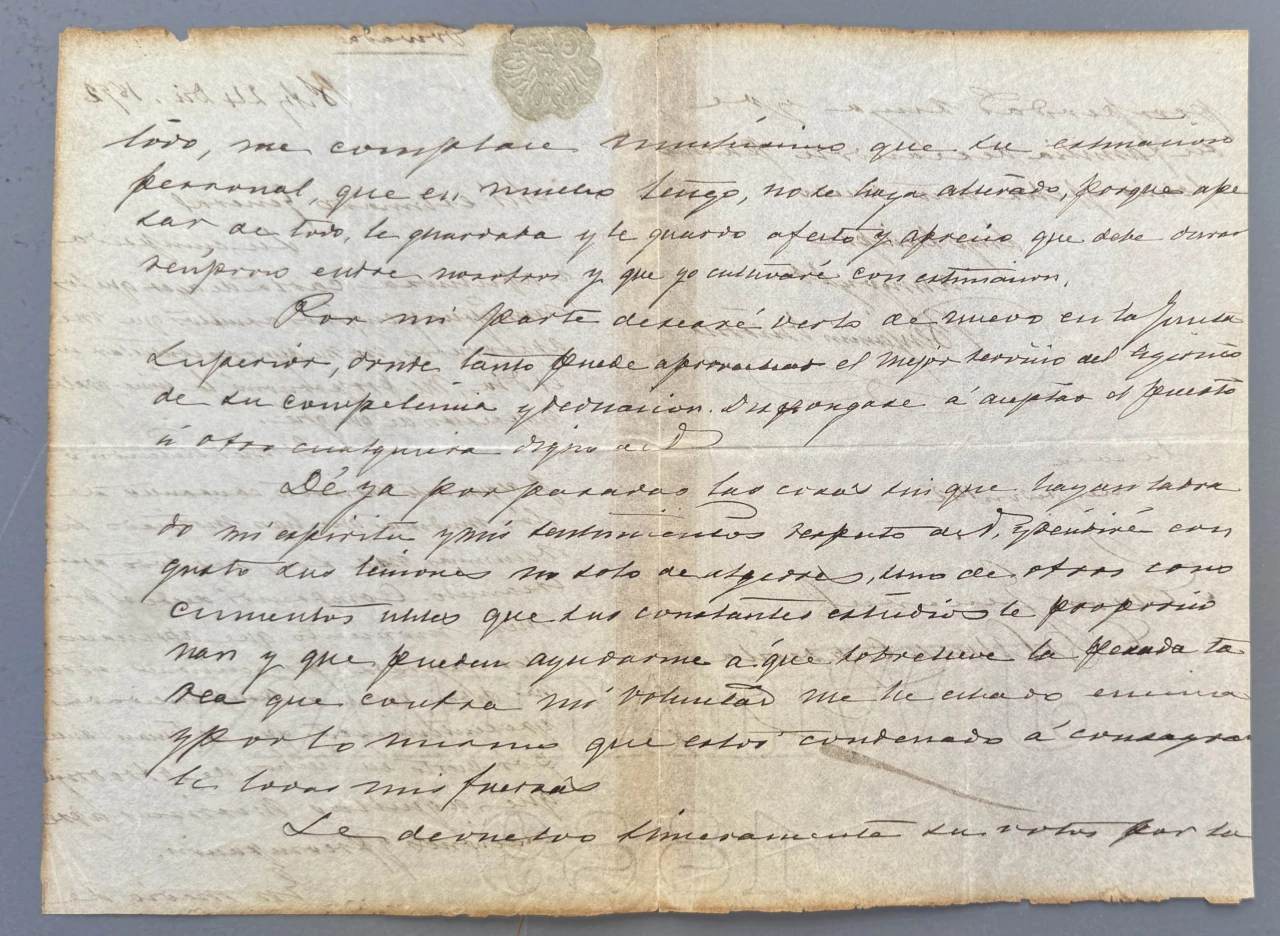 todo, me complace muchisimo que su estimacion
personal, que en mucho tengo, no se haya alterado, porque ape
sar de todo, le guardaba y le guardo afecto y aprecio que debe durar
reciproco entre nosotros y que yo cultivaré con estimacion.
Por mi parte desearé verlo de nuevo en la Junta
Superior, donde tanto puede aprovechar el mejor servicio del Egercito
de su competencia y dedicacion. Dispongase á aceptar el puesto
ú otro cualquiera digno de V
Dé ya por pasadas las cosas sin que hayan labra
do mi espiritu y mis sentimientos respecto de V. y recibiré con
gusto sus lecciones no solo de algedrez, sino de otros cono
cimientos utiles que sus constantes estudios le proporcio
nan y que pueden ayudarme á que sobrelleve la pesada ta
rea que contra mi voluntad me he echado encima
y por lo mismo que estoi condenado á consagrar
le todas mis fuerzas
Le devuelvo sinceramente sus votos por la